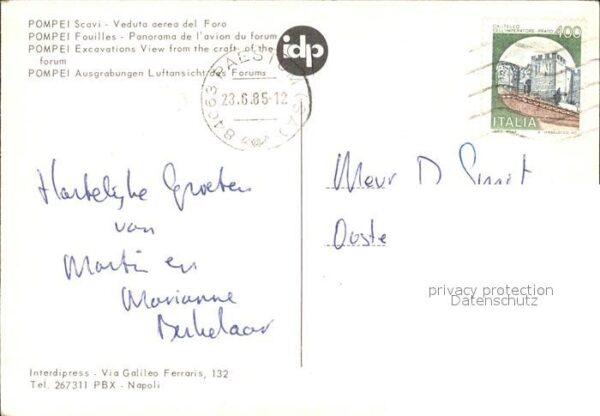 POMPEI Scavi - Veduta aerea del Foro
POMPEI Fouilles - Panorama de l'avion du forum
POMPEI Excavations View from the craft of the
forum
POMPEI Ausgrabungen Luftansicht des Forums
idp
84063 PAESTUM (SA)
23.6.85-12
CASTELLO
DELL'IMPERATORE-PRATO
400
ITALIA
Hartelijke Groeten
van
Martin en
Marianne
Mevr D. Smit
Ooste
privacy protection
Datenschutz
Interdipress - Via Galileo Ferraris, 132
Tel. 267311 PBX - Napoli